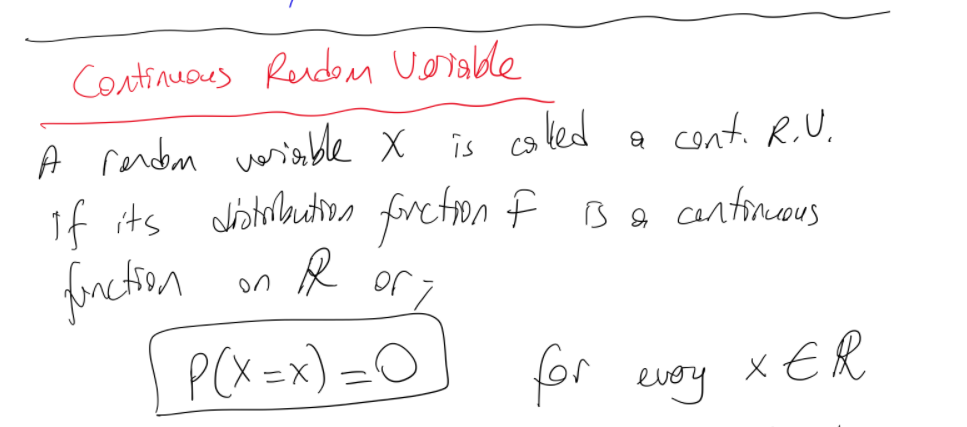 Continuous Random Variable
A random variable X is called a cont. R.V.
If its distribution function F is a continuous
function on ℝ or;
P(X=x)=0 for every x ∈ ℝ